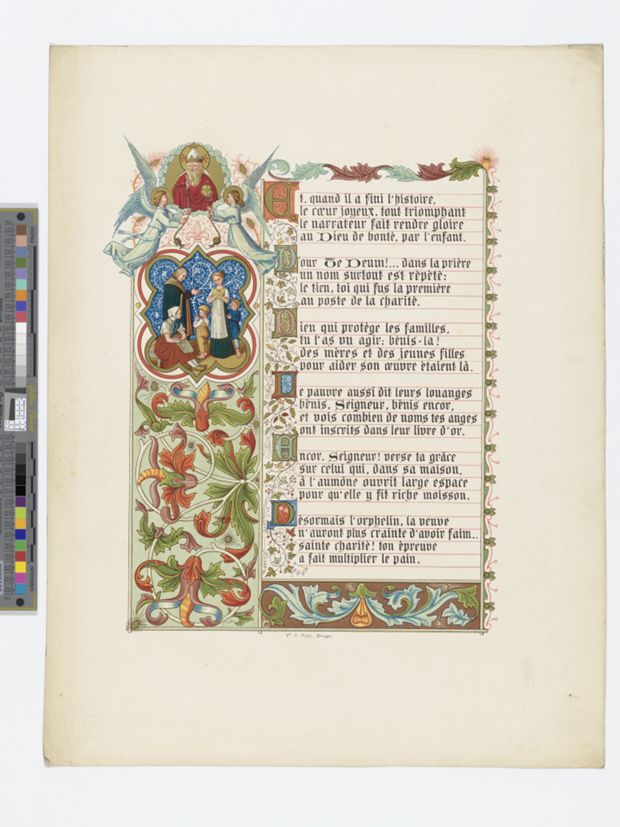 Et, quand il a fini l'histoire,
le cœur joyeux, tout triomphant
le narrateur fait rendre gloire
au Dieu de bonté, par l'enfant.
Pour Te Deum!... dans la prière
un nom surtout est répété:
le tien, toi qui fus la première
au poste de la charité.
Dieu qui protège les familles,
tu l'as vu agir; bénis-la!
des mères et des jeunes filles
pour aider son œuvre étaient là.
Le pauvre aussi dit leurs louanges
bénis, Seigneur, bénis encor,
et vois combien de noms tes anges
ont inscrits dans leur livre d'or.
Ancor, Seigneur! verse ta grâce
sur celui qui, dans sa maison,
à l'aumône ouvrit large espace
pour qu'elle y fit riche moisson.
Désormais l'orphelin, la veuve
n'auront plus crainte d'avoir faim..
sainte charité! ton épreuve
a fait multiplier le pain.